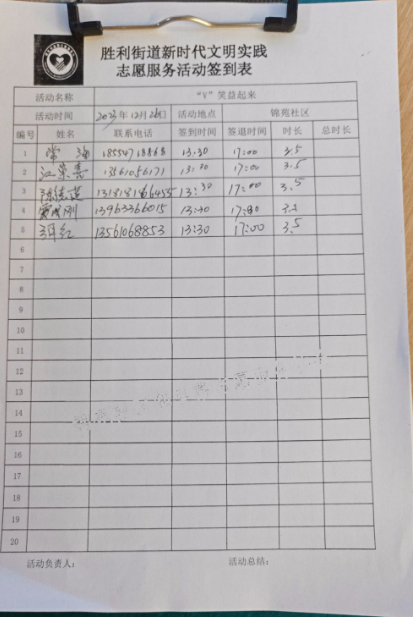 胜利街道新时代文明实践
志愿服务活动签到表
活动名称 "V"笑益起来
活动时间 2023年12月26日 活动地点 锦苑社区
编号 姓名 联系电话 签到时间 签退时间 时长 总时长
1 常海 13:30 17:00 3.5
2 13561056171 13:30 17:00 3.5
3 13:30 17:00 3.5
4 13963366015 13:30 17:00 3.5
5 13561068853 13:30 17:00 3.5
6
7
8
9
10
11
12
13
14
15
16
17
18
19
20
活动负责人： 活动总结：